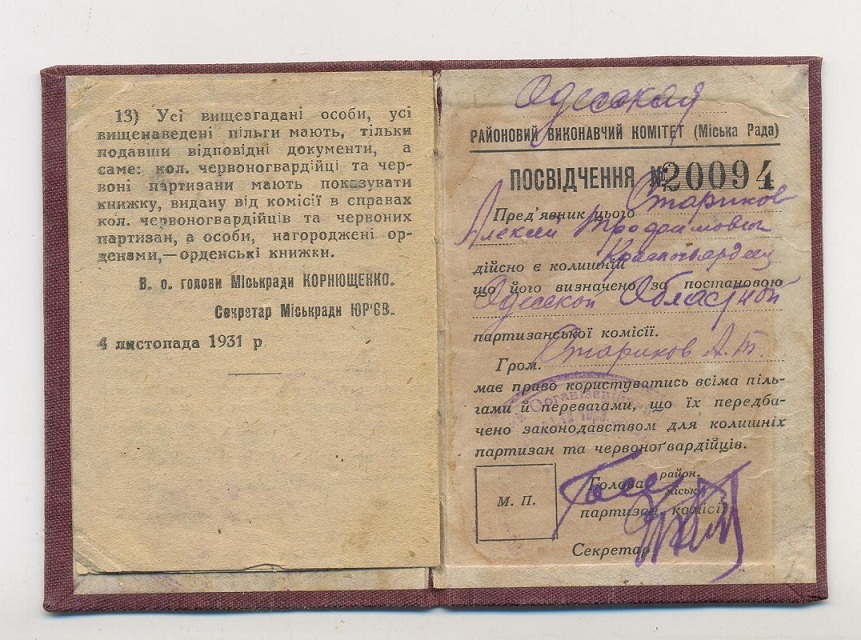 13) Усі вищезгадані особи, усі
вищенаведені пільги мають, тільки
подавши відповідні документи, а
саме: кол. червоногвардійці та чер-
воні партизани мають показувати
книжку, видану від комісії в справах
кол. червоногвардійців та червоних
партизан, а особи, нагороджені ор-
денами,—орденські книжки.
В. о. голови Міськради КОРНЮЩЕНКО.
Секретар Міськради ЮР'ЄВ.
4 листопада 1931 р
Одесская
РАЙОНОВИЙ ВИКОНАВЧИЙ КОМІТЕТ (Міська Рада)
ПОСВІДЧЕННЯ № 20094
Пред'явник цього Стариков
Алексей Трофимович
дійсно є колишній Красногвардеец
що його визначено за постановою
Одесской Областной
партизанської комісії.
Гром. Стариков А. Т.
має право користуватись всіма піль-
гами й перевагами, що їх передба-
чено законодавством для колишніх
партизан та червоногвардійців.
М. П.
Голова район.
міськ.
партизан. комісії
Секретар